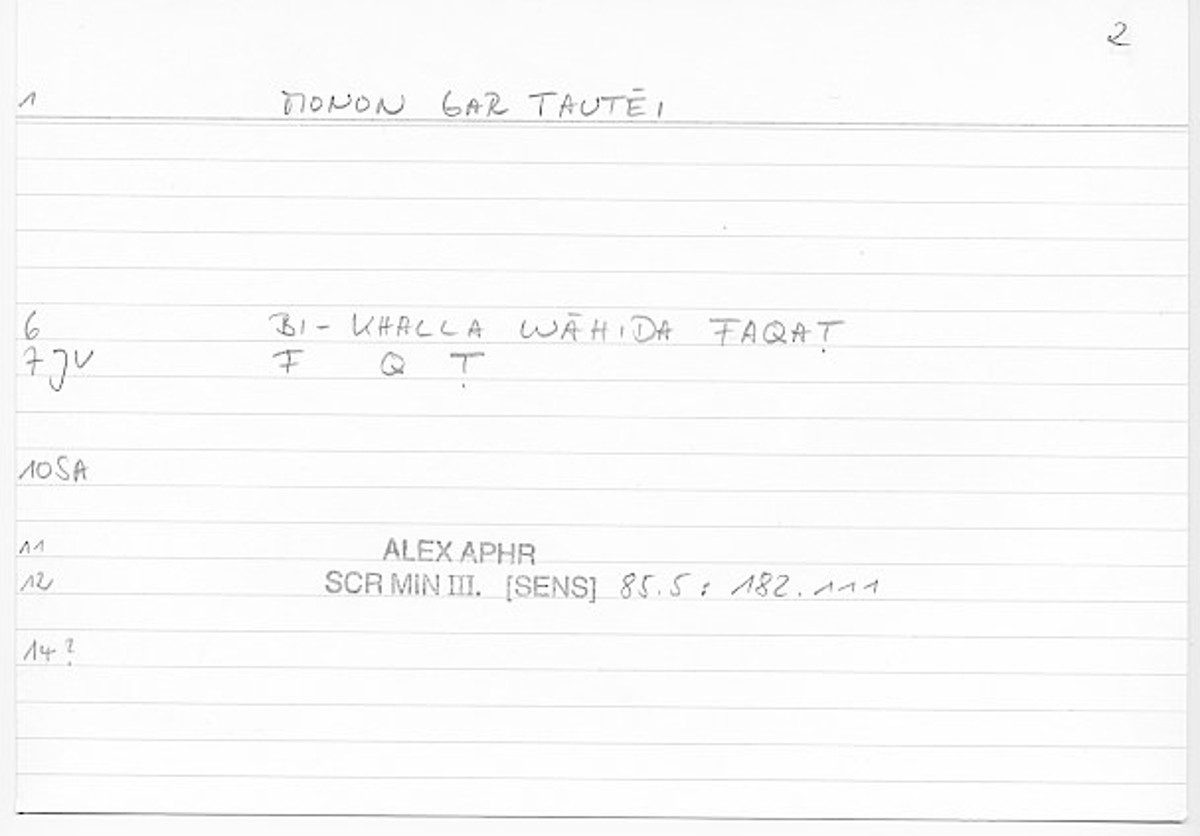 2
1 MONON GAR TAUTĒI
6 BI- KHALLA WĀHIDA FAQAṬ
7 JV F Q Ṭ
10 SA
11 ALEX APHR
12 SCR MIN III. [SENS] 85.5 : 182.111
14?